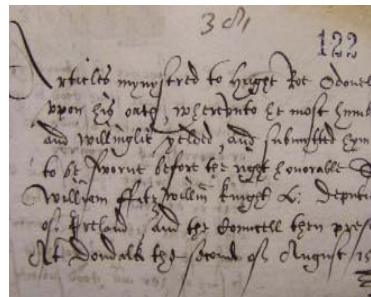 381
122
Articles mynystred to Hughe Roe Odonell
upon his oath, whereunto he most humb
and willinglie yelded, and submitted hym
to be sworne before the right honorable S
William ffitzwillm knight &c deputie
of Ireland and the Councell then pres
At Dondalk the second of August 15